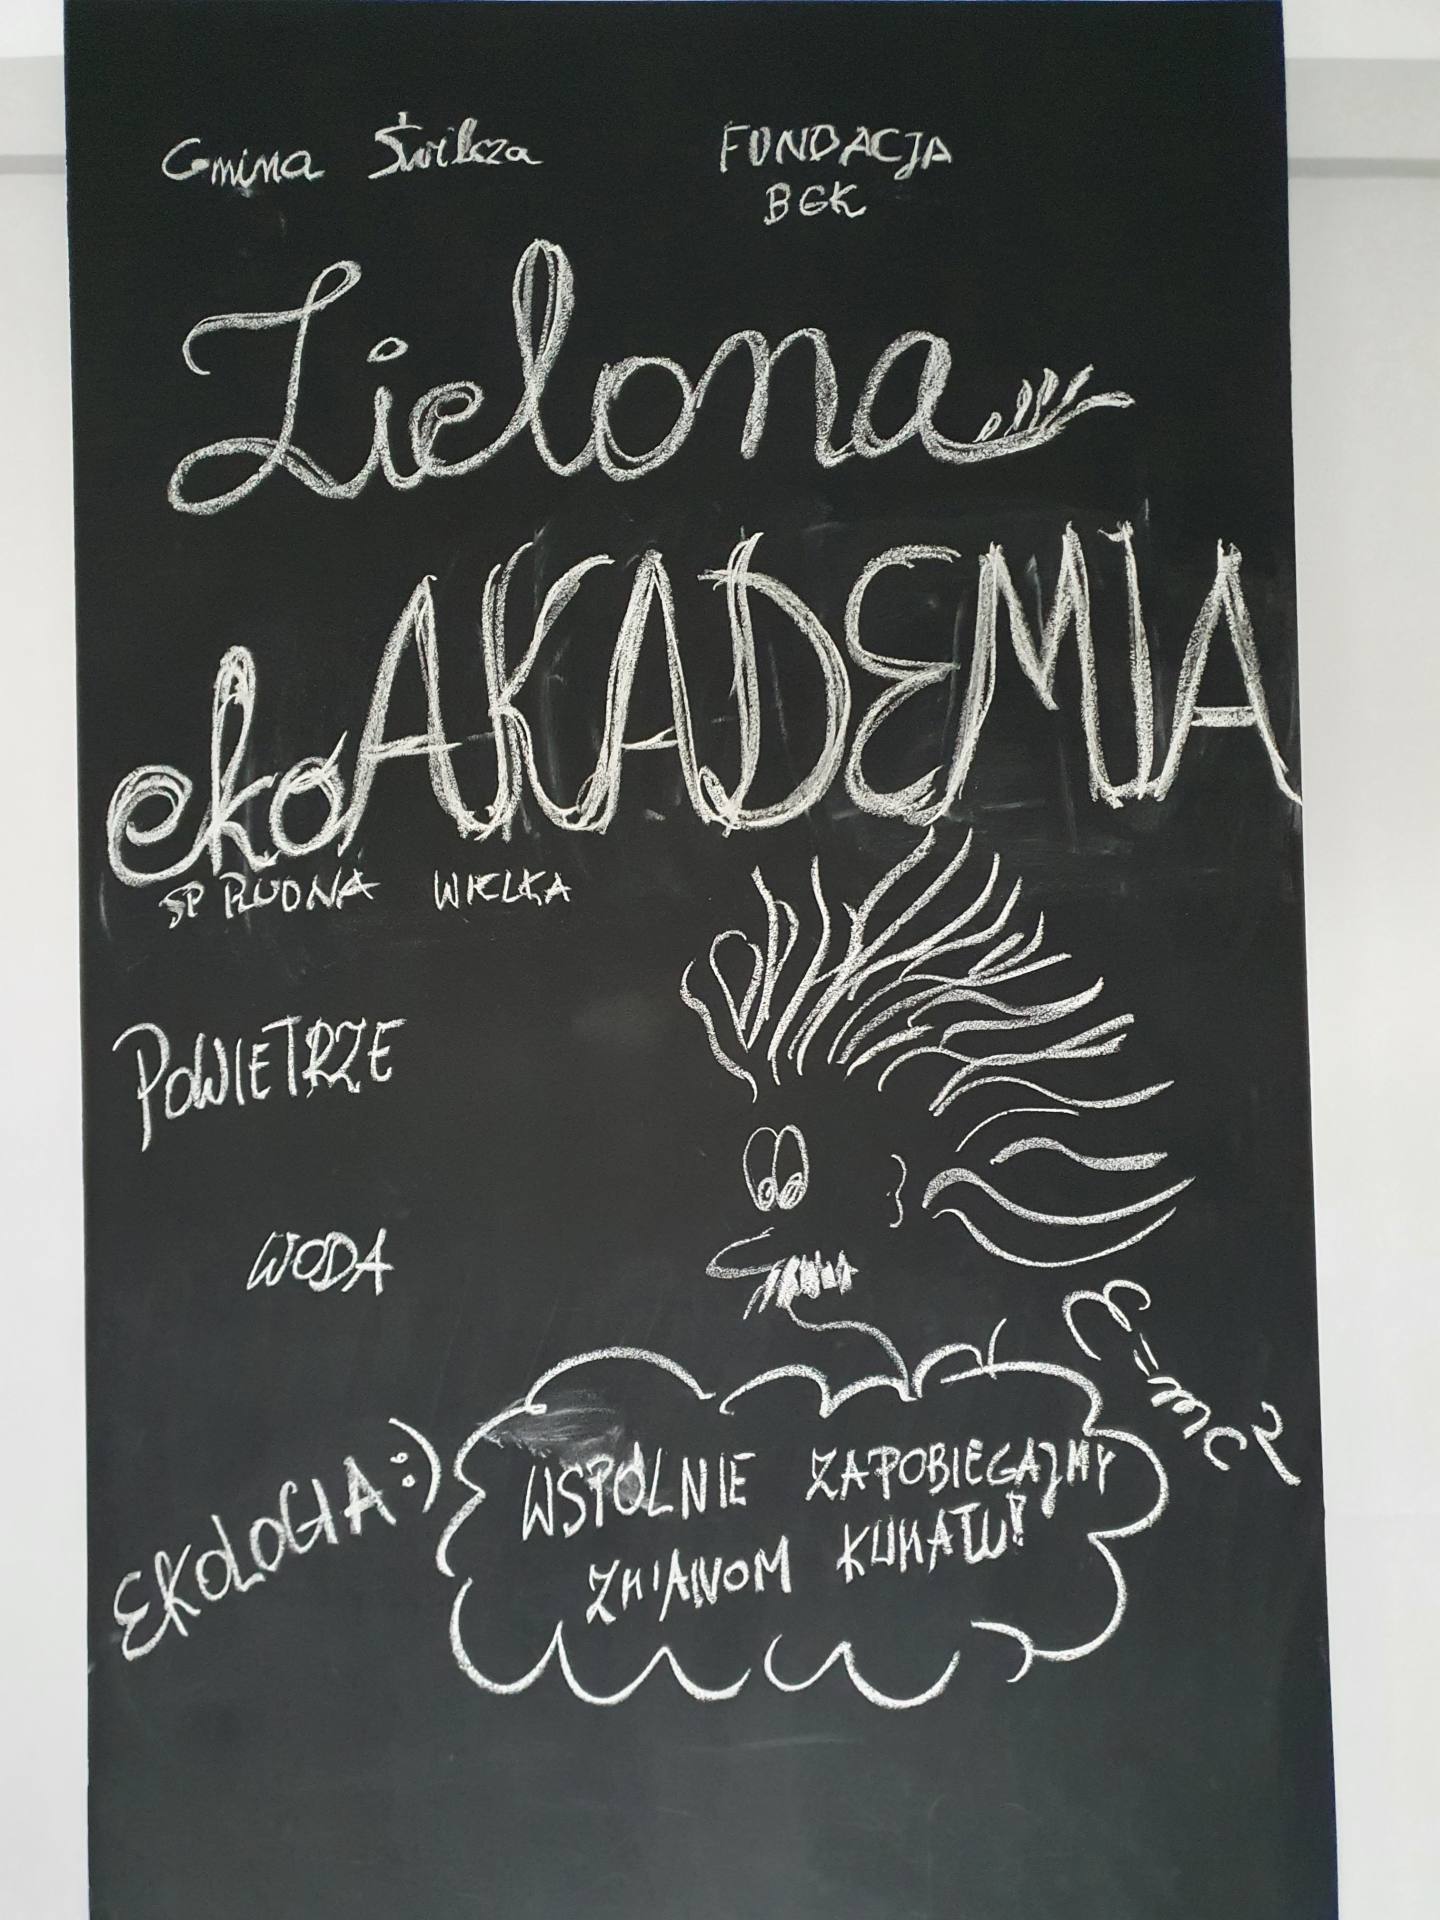 Gmina Świlcza
FUNDACJA
BGK
Zielona
ekoAKADEMIA
SP RUDNA WIELKA
POWIETRZE
WODA
E=mc2
EKOLOGIA:)
WSPÓLNIE ZAPOBIEGAJMY
ZMIANOM KLIMATU!